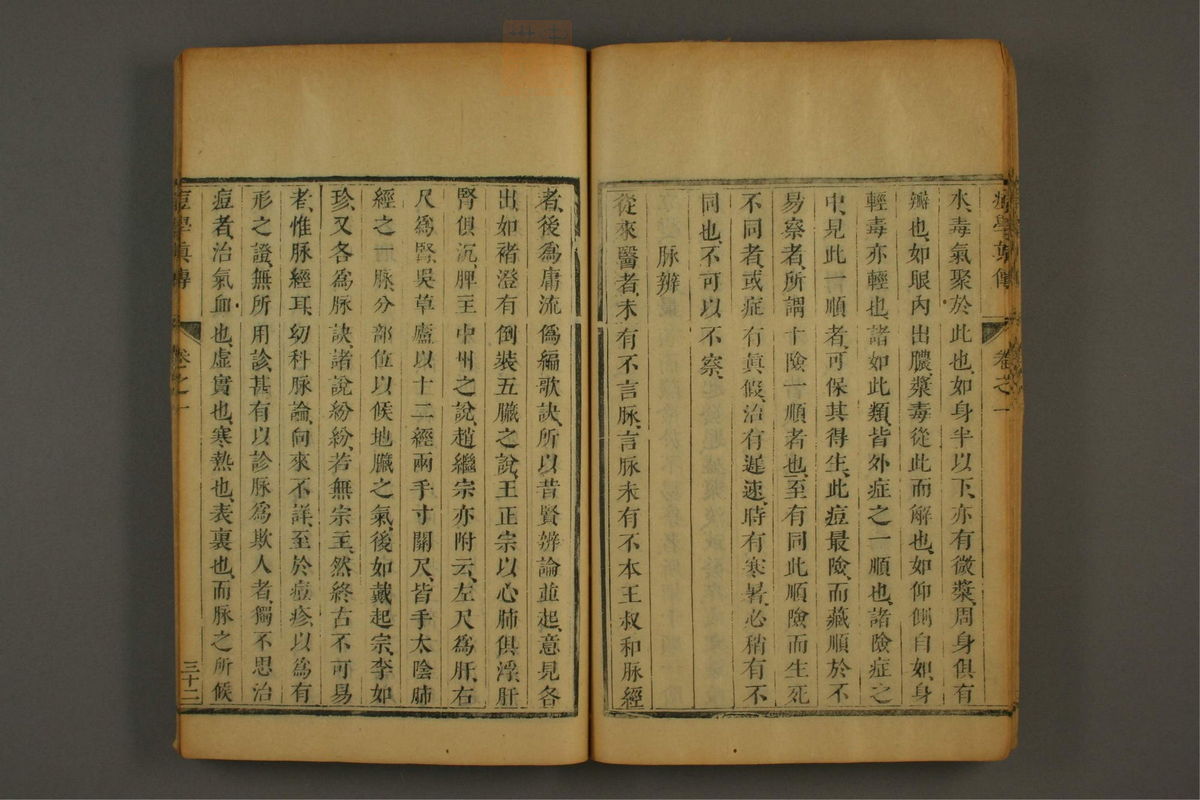 痘學真傳 卷之一
水毒氣聚於此也、如身半以下、亦有微漿、周身俱有
瓣也、如眼內出膿漿毒從此而解也、如仰側自如、身
輕毒亦輕也、諸如此類、皆外症之一順也、諸險症之
中、見此一順者、可保其得生、此痘最險、而藏順於不
易察者、所謂十險一順者也、至有同此順險而生死
不同者、或症有眞假、治有遲速、時有寒暑、必稍有不
同也、不可以不察、
脉辨
從來醫者、未有不言脉、言脉未有不本王叔和脉經
者、後爲庸流僞編歌訣、所以昔賢辨論並起、意見各
出、如褚澄有倒裝五臟之說、王正宗以心肺俱浮、肝
腎俱沉、脾主中州之說、趙繼宗亦附云、左尺爲肝、右
尺爲腎、吳草廬以十二經兩手寸關尺、皆手太陰肺
經之一脉、分部位以候他臟之氣、後如戴起宗、李如
珍、又各爲脉訣、諸說紛紛、若無宗主、然終古不可易
者、惟脉經耳、幼科脉論、向來不詳、至於痘疹、以爲有
形之證、無所用診、甚有以診脉爲欺人者、獨不思治
痘者、治氣血也、虛實也、寒熱也、表裏也、而脉之所候
痘學真傳 卷之一 三十二